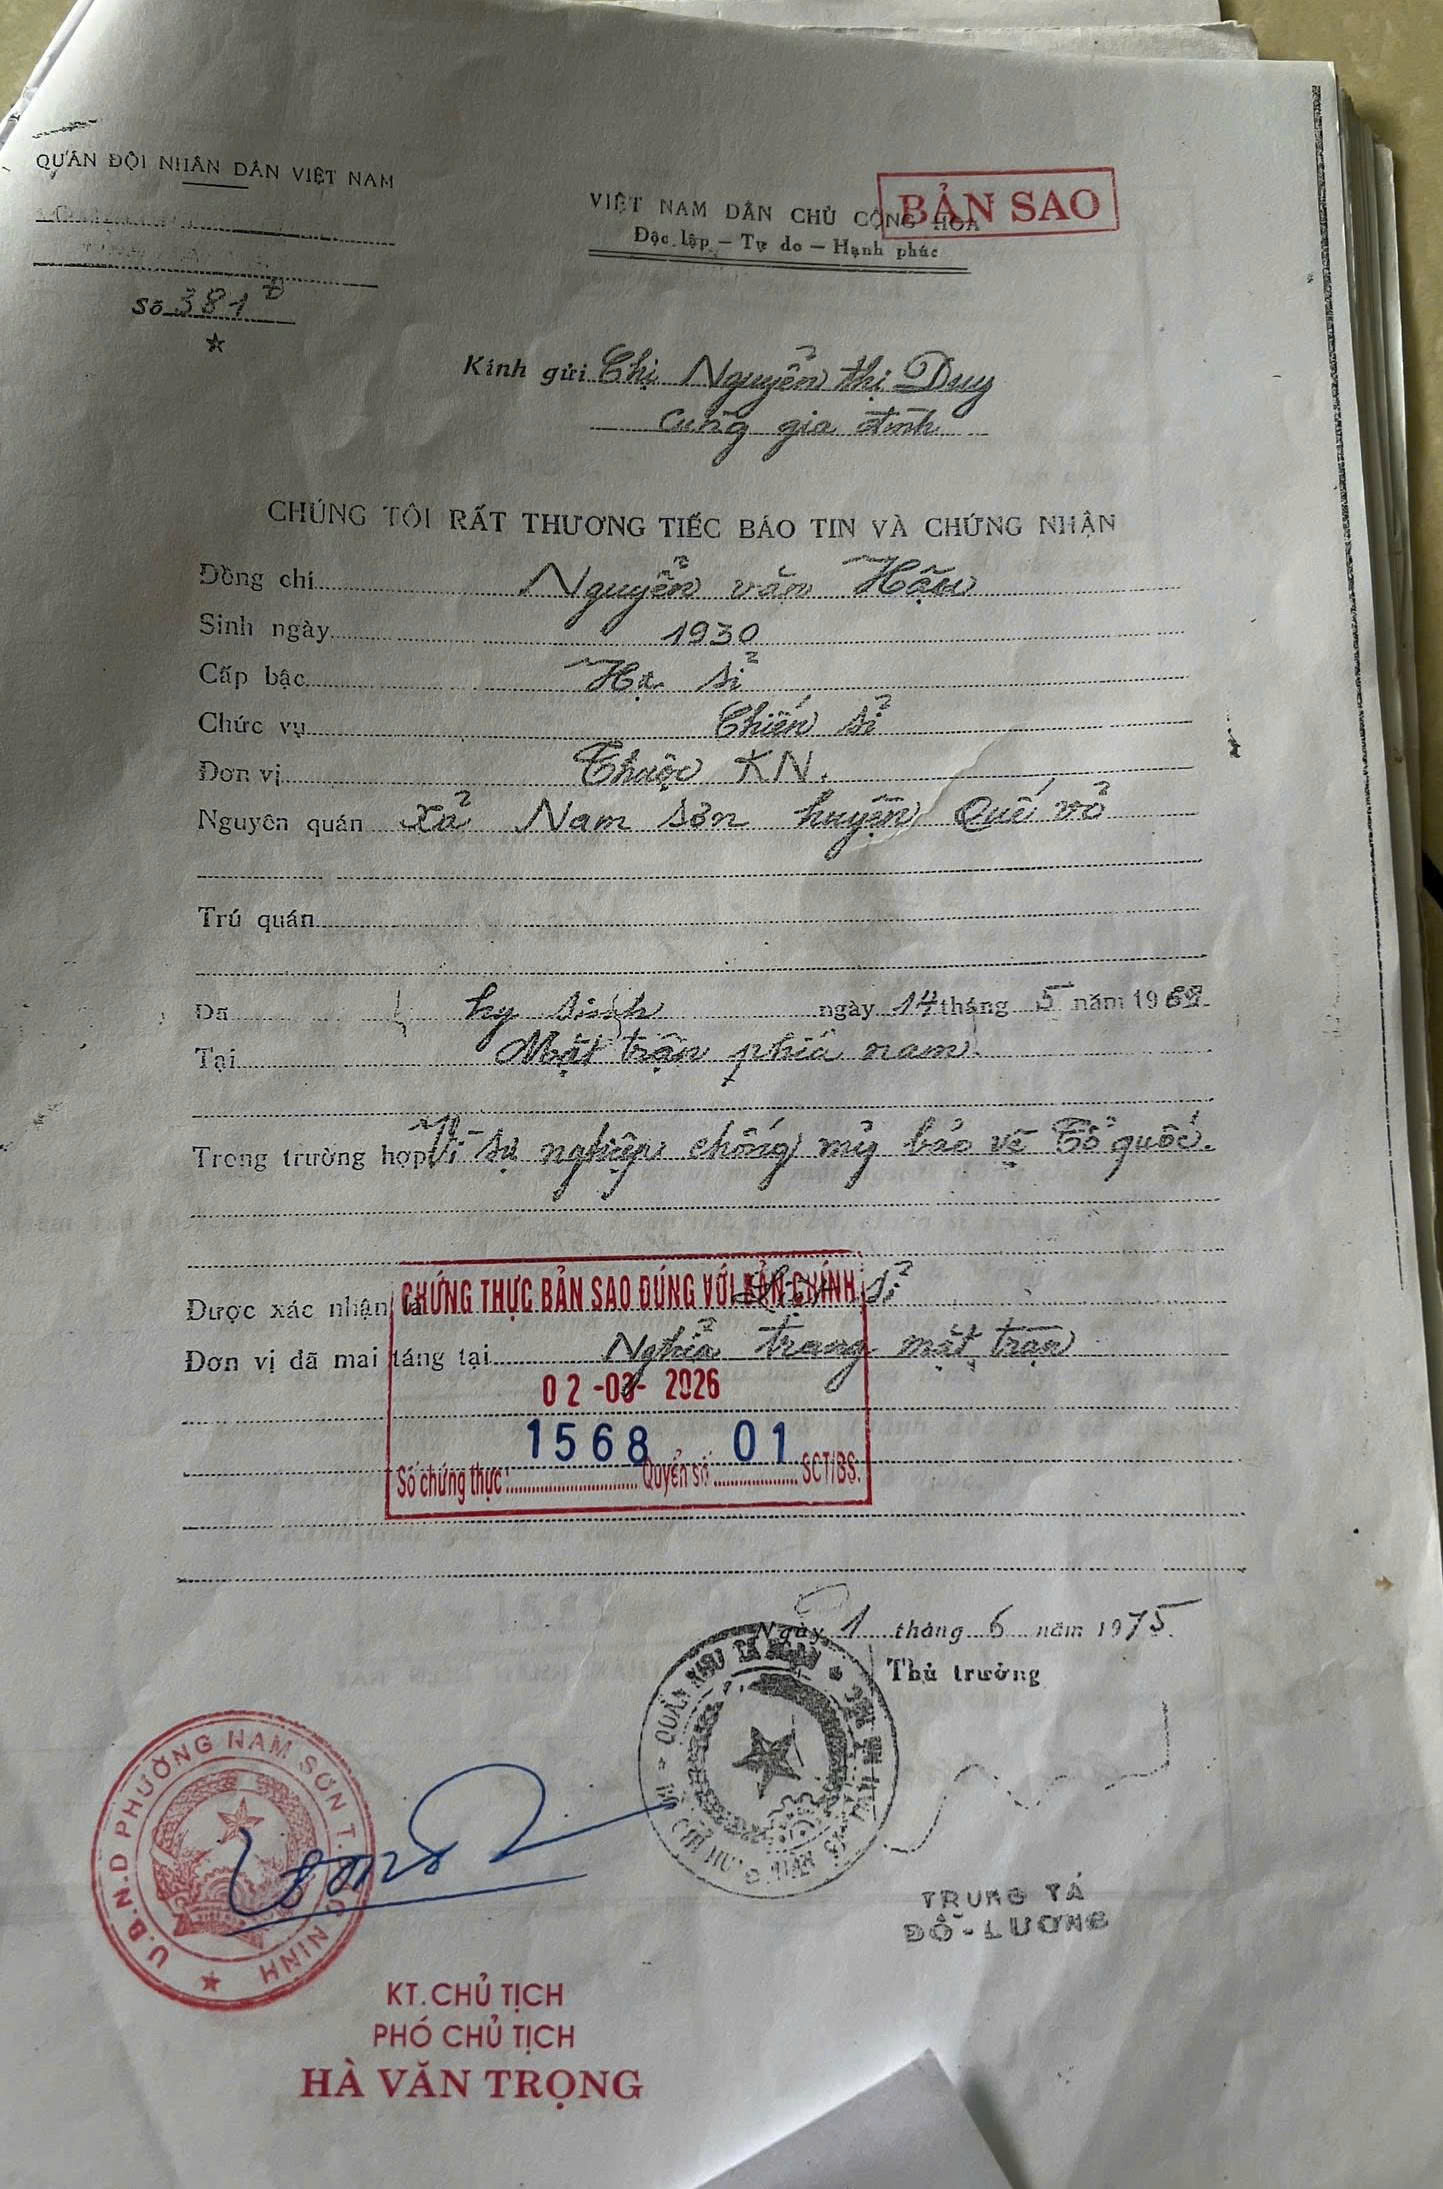 QUÂN ĐỘI NHÂN DÂN VIỆT NAM
Số 381 Đ
VIỆT NAM DÂN CHỦ CỘNG HOA
BẢN SAO
Độc lập – Tự do – Hạnh phúc
Kính gửi Chị Nguyển thị Duy
Cùng gia đình
CHÚNG TÔI RẤT THƯƠNG TIẾC BÁO TIN VÀ CHỨNG NHẬN
Đồng chí Nguyển văn Hậu
Sinh ngày 1930
Cấp bậc Hạ sỉ
Chức vụ Chiến sỉ
Đơn vị Thuộc KN.
Nguyên quán xả Nam Sơn huyện Quế vỏ
Trú quán
Đã hy sinh ngày 14 tháng 5 năm 1968
Tại Mặt trận phía nam.
Trong trường hợp Vì sự nghiệp chống mỷ bảo vệ Tổ quốc.
CHỨNG THỰC BẢN SAO ĐÚNG VỚI BẢN CHÍNH
Được xác nhận là sỉ
Đơn vị đã mai táng tại Nghỉa trang mặt trận
02 -03- 2026
1568 01
Số chứng thực: Quyển số SCT/BS.
Ngày 1 tháng 6 năm 1975
Thủ trưởng
U.B.N.D PHƯỜNG NAM SƠN T. BẮC NINH
TRUNG TÁ
ĐỖ-LƯƠNG
KT. CHỦ TỊCH
PHÓ CHỦ TỊCH
HÀ VĂN TRỌNG